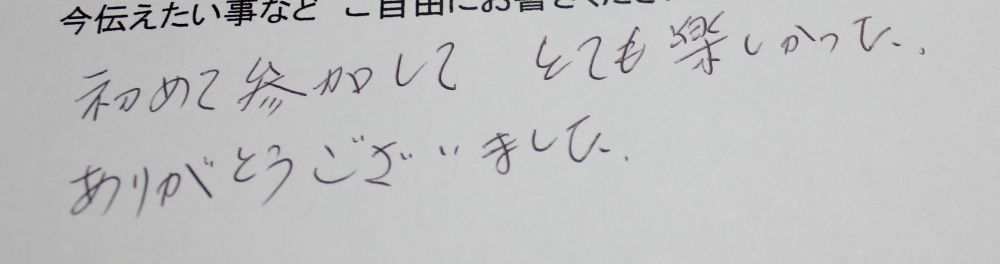 今伝えたい事など ご自由にお書きくださ
初めて参加して とても楽しかった.
ありがとうございました.